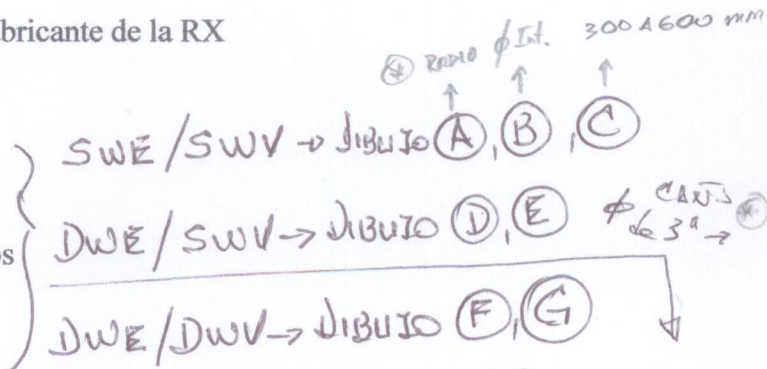 bricante de la RX
* RADIO ϕ Int. 300 A 600 mm
SWE/SWV → DIBUJO A, B, C
DWE/SWV → DIBUJO D, E ϕ CAÑOS de 3" → *
os
DWE/DWV → DIBUJO F, G